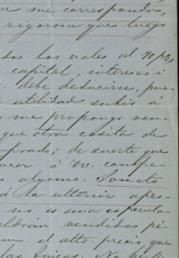 me correspondor,
rigorosa que luego
los vales al 40 p%,
capital, intereses i
debe deducirse, pues
utilidad subió á
me propongo ven-
que otra cosita de
prado; de suerte que
á vc. compe-
alguno. Someto
á la ulterior apro-
no es una especula-
vendidos pr
el alto precio que
las fincas. No